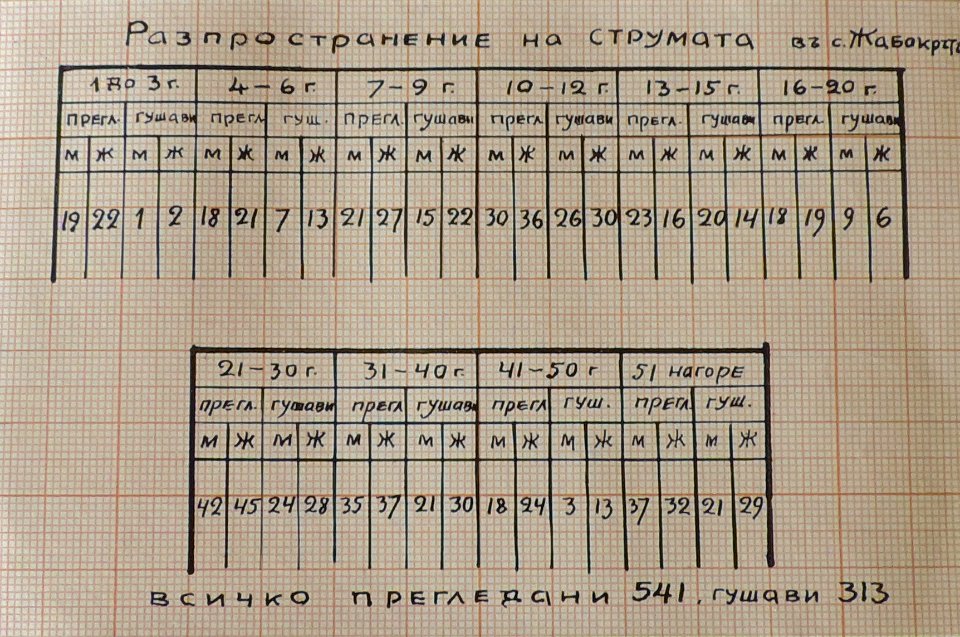 Разпространение на струмата въ с. Жабокръ
1 до 3 г. 4 – 6 г. 7 – 9 г. 10 – 12 г. 13 – 15 г. 16 – 20 г.
прегл. гушави прегл гуш. прегл. гушави прегл гушави прегл. гушави прегл. гушави
м ж м ж м ж м ж м ж м ж м ж м ж м ж м ж м ж м ж
19 22 1 2 18 21 7 13 21 27 15 22 30 36 26 30 23 16 20 14 18 19 9 6
21 – 30 г. 31 – 40 г. 41 – 50 г 51 нагоре
прегл. гушави прегл гушави прегл гуш. прегл. гуш.
м ж м ж м ж м ж м ж м ж м ж м ж
42 45 24 28 35 37 21 30 18 24 3 13 37 32 21 29
всичко прегледани 541, гушави 313